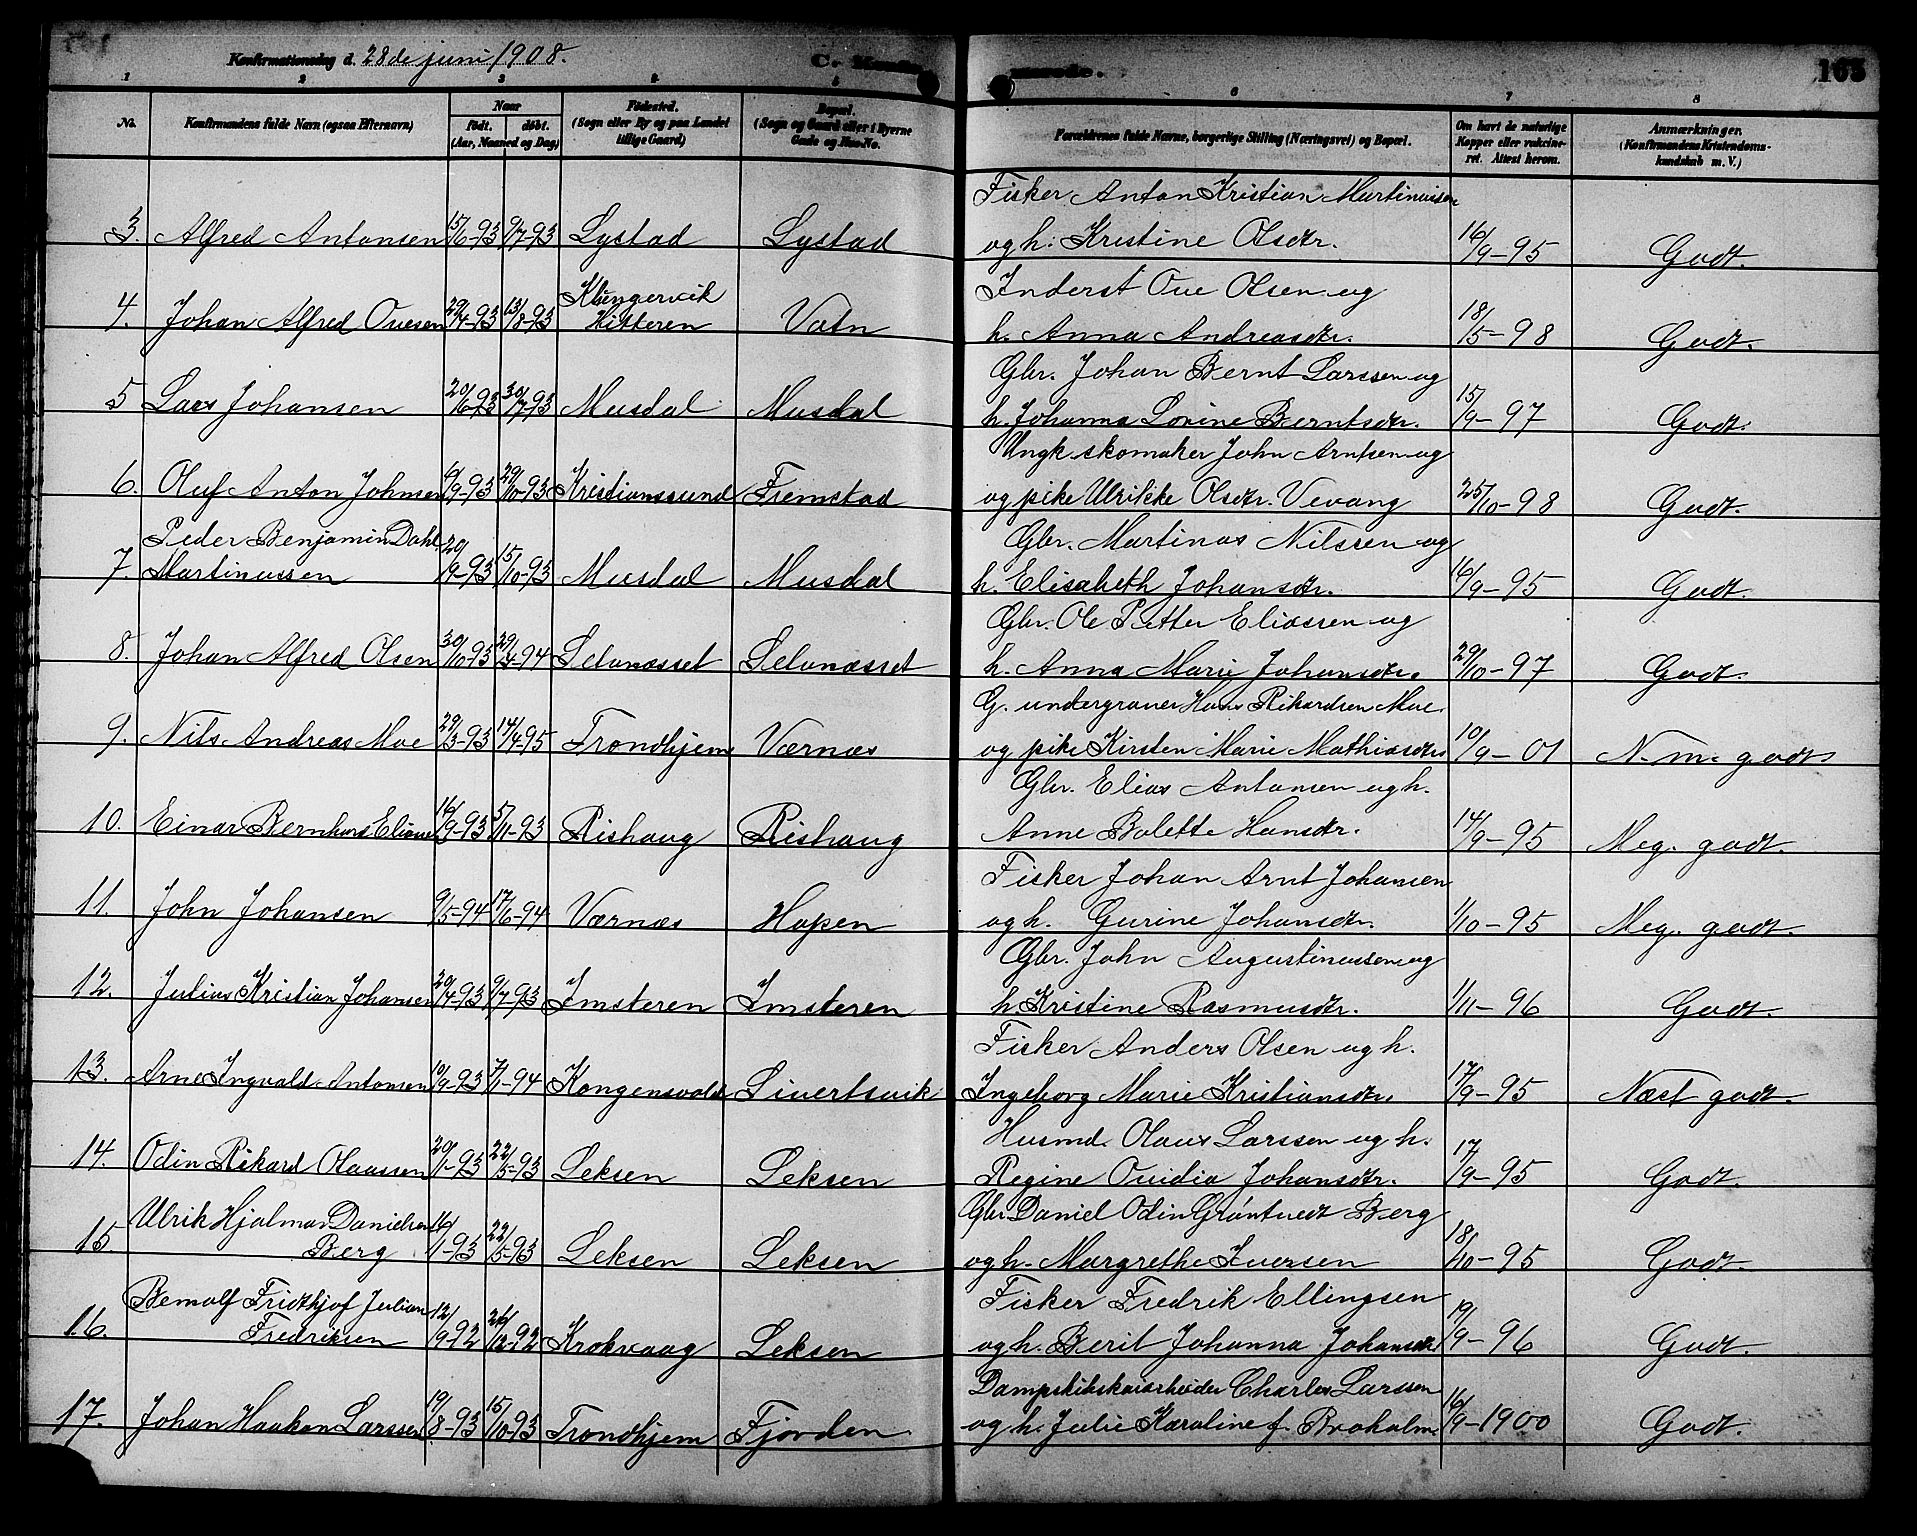 Konfirmationsdag d. 28de juni 1908.
C. Mandk
nnede.
165
1 2 3 4 5 6 7 8
No.
Konfirmandens fulde Navn (ogsaa Efternavn)
Naar
født. døbt.
(Aar, Maaned og Dag)
Fødested.
(Sogn eller By og paa Landet
tillige Gaard)
Bopæl.
(Sogn og Gaard eller i Byerne
Gade og Hus-No.
Forældrenes fulde Navne, borgerlige Stilling (Næringsvei) og Bopæl.
Om havt de naturlige
Kopper eller vakcine-
ret. Attest herom.
Anmærkninger.
(Konfirmandens Kristendoms-
kundskab m. V.)
Fisker Anton Kristian Martinussen
3. Alfred Antonsen 15/6-93 9/7-93 Lystad Lystad og h. Kristine Olsdtr. 16/9-95 Godt.
Klungervik Inderst Ove Olsen og
4. Johan Alfred Ovesen 29/4-93 13/8-93 Hitteren Vatn h. Anna Andreasdtr. 18/5-98 Godt.
Gbr. Johan Bernt Larssen og
5 Lars Johansen 20/6-93 30/7-93 Musdal Musdal h. Johanna Lovine Berntsdtr. 15/9-97 Godt.
Ungk. skomaker John Arntsen og
6. Oluf Anton Johnsen 6/9-93 29/10-93 Kristianssund Fremstad og pike Ulrikke Olsdtr. Vevang 25/10-98 Godt.
Peder Benjamin Dahl Gbr. Martinus Nilssen og
7. Martinussen 20/9-93 15/10-93 Musdal Musdal h. Elisabeth Johansdtr. 16/9-95 Godt.
Gbr. Ole Petter Eliassen og
8. Johan Alfred Olsen 30/10-93 29/3-94 Selvnæsset Selvnæsset h. Anna Marie Johansdtr. 29/10-97 Godt.
G. undergraver Hans Rikardsen Moe
9. Nils Andreas Moe 29/3-93 14/4-95 Trondhjem Værnæs og pike Kirsten Marie Mathiasdtr 10/9-01 N. m. godt
Gbr. Elias Antonsen og h.
10. Einar Bernhard Eliasen 16/9-93 5/11-93 Rishaug Rishaug Anne Bolette Hansdtr. 14/9-95 Meg. godt.
Fisker Johan Arnt Johansen
11. John Johansen 9/5-94 17/6-94 Værnæs Hopen og h. Gurine Johansdtr. 1/10-95 Meg. godt.
Gbr. John Augustinussen og
12. Julius Kristian Johansen 20/4-93 9/7-93 Imsteren Imsteren h. Kristine Rasmusdtr. 1/11-96 Godt.
Fisker Anders Olsen og h.
13. Arne Ingvald Antonsen 10/9-93 7/1-94 Kongensvold Sivertsvik Ingeborg Marie Kristiansdtr 17/9-95 Næst godt.
Husmd. Olaus Larssen og h.
14. Odin Rikard Olaussen 20/1-93 22/5-93 Leksen Leksen Regine Ovidia Johansdtr. 17/9-95 Godt.
Ulrik Hjalmar Danielsen Gbr Daniel Odin Grøntvedt Berg
15. Berg 16/1-93 22/5-93 Leksen Leksen og h. Margrethe Iversen 18/10-95 Godt.
Bernolf Fridthjof Julian Fisker Fredrik Ellingsen
16. Fredriksen 12/9-92 26/12-92 Krokvaag Leksen og h. Berit Johanna Johansdtr 19/9-96 Godt.
Dampskibskaiarbeider Charles Larssen
17. Johan Haakon Larssen 19/8-93 15/10-93 Trondhjem Fjorden og h. Julie Karoline f. Broholm. 16/9-1900 Godt.